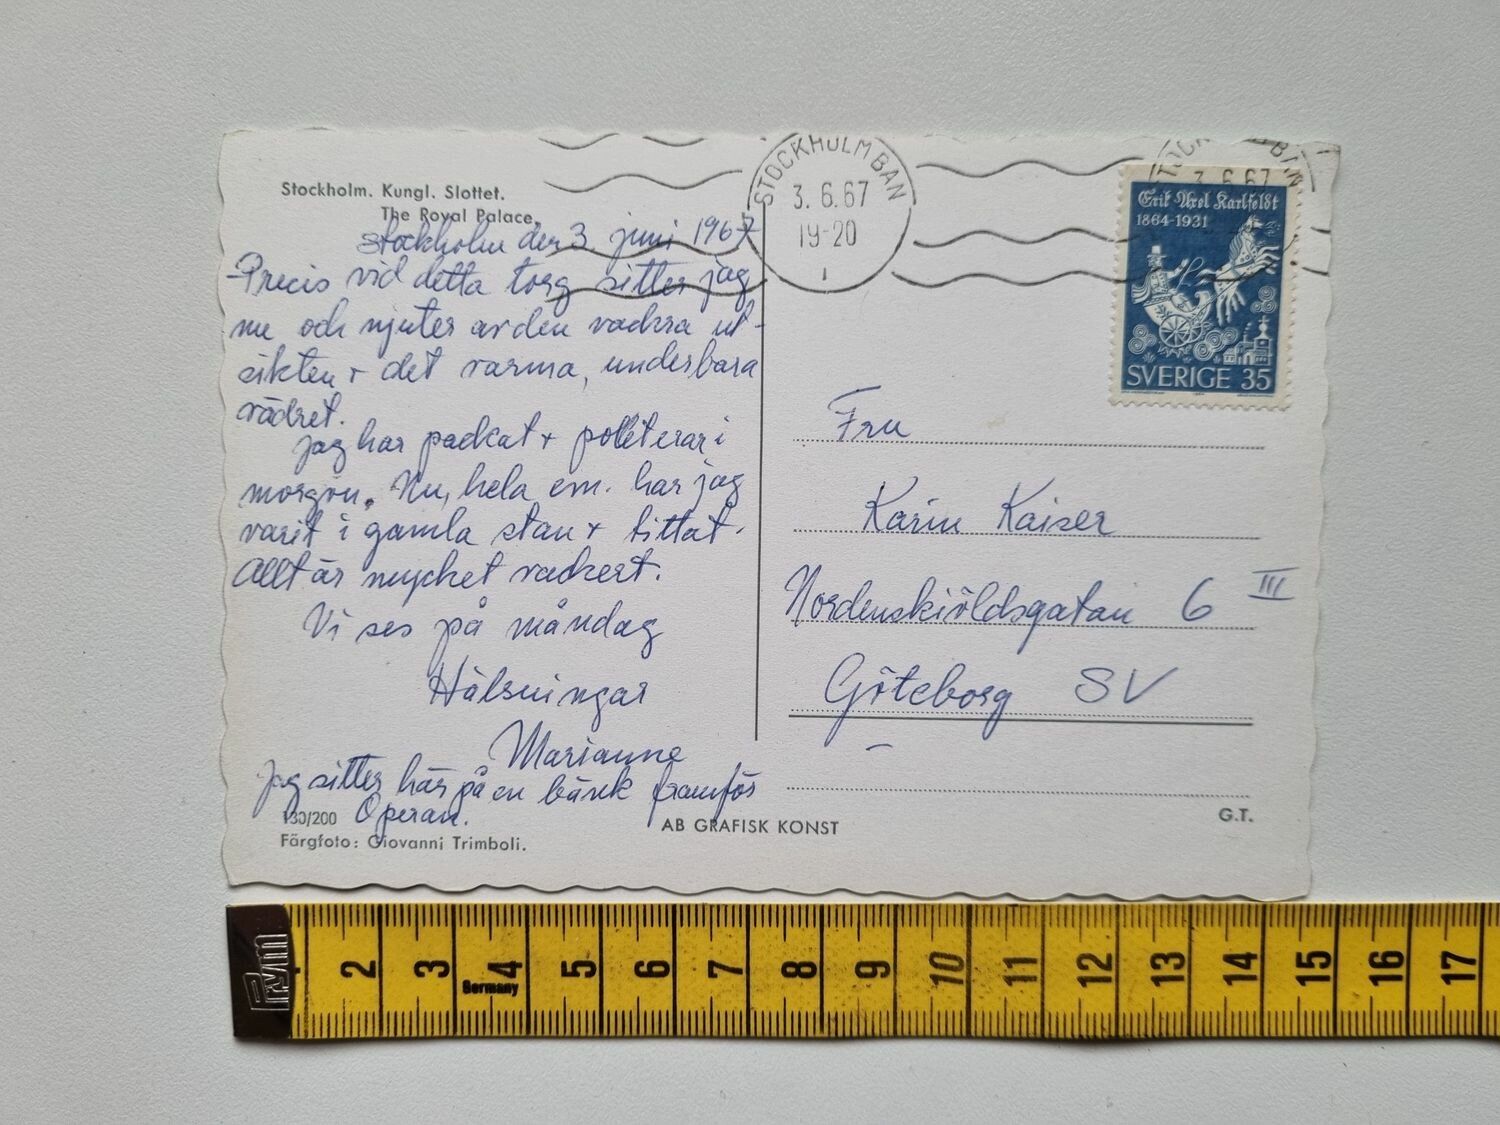 Stockholm. Kungl. Slottet.
The Royal Palace.
Stockholm den 3 juni 1967
Precis vid detta torg sitter jag
nu och njuter av den vackra ut-
sikten + det varma, underbara
vädret.
Jag har packat + polletterar i
morgon. Nu, hela em. har jag
varit i gamla stan + tittat.
Allt är mycket vackert.
Vi ses på måndag
Hälsningar
Marianne
Jag sitter här på en bänk framför
Operan.
130/200
Färgfoto: Giovanni Trimboli.
AB GRAFISK KONST
G.T.
STOCKHOLM BAN
3.6.67
19-20
1
STOCKHOLM BAN
3.6.67
Erik Axel Karlfeldt
1864-1931
SVERIGE 35
Fru
Karin Kaiser
Nordenskiöldsgatan 6 III
Göteborg SV
Pym
1 2 3 4 5 6 7 8 9 10 11 12 13 14 15 16 17
Germany